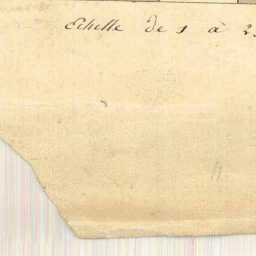 Echelle de 1 à 2